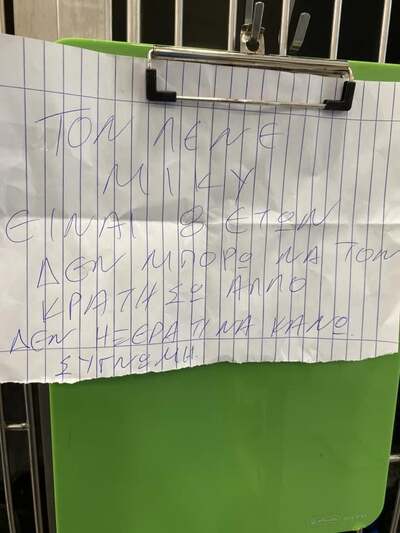 ΤΟΝ ΛΕΝΕ
ΜΙΚΥ
ΕΙΝΑΙ 8 ΕΤΩΝ
ΔΕΝ ΜΠΟΡΩ ΝΑ ΤΟΝ
ΚΡΑΤΗΣΩ ΑΛΛΟ
ΔΕΝ ΗΞΕΡΑ ΤΙ ΝΑ ΚΑΝΩ.
ΣΥΓΝΩΜΗ.